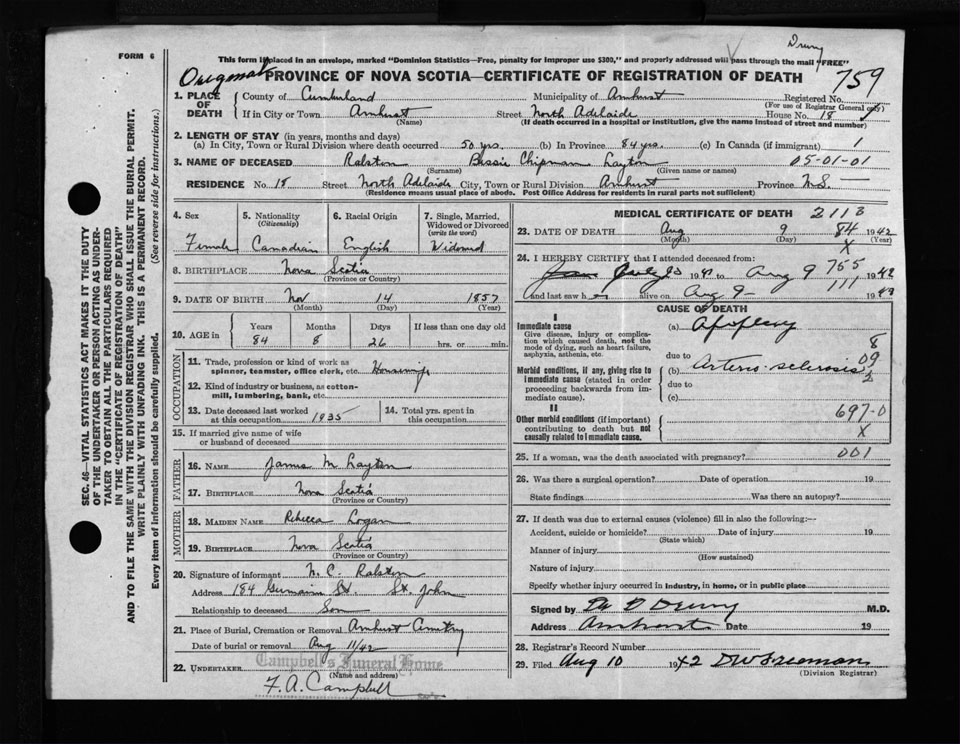 FORM 6
This form if placed in an envelope, marked "Dominion Statistics—Free, penalty for improper use $300," and properly addressed will pass through the mail "FREE"
Drury
Original PROVINCE OF NOVA SCOTIA—CERTIFICATE OF REGISTRATION OF DEATH 759
1. PLACE OF DEATH County of Cumberland Municipality of Amherst Registered No.
(For use of Registrar General only)
If in City or Town Amherst Street North Adelaide House No. 18
(Name) (If death occurred in a hospital or institution, give the name instead of street and number)
2. LENGTH OF STAY (in years, months and days)
(a) In City, Town or Rural Division where death occurred 50 yrs. (b) In Province 84 yrs. (c) In Canada (if immigrant) 1
3. NAME OF DECEASED Ralston Bessie Chipman Layton 05-01-01
(Surname) (Given name or names)
RESIDENCE No. 18 Street North Adelaide City, Town or Rural Division Amherst Province N.S.
(Residence means usual place of abode. Post Office Address for residents in rural parts not sufficient)
4. Sex 5. Nationality (Citizenship) 6. Racial Origin 7. Single, Married, Widowed or Divorced (write the word)
Female Canadian English Widowed
8. BIRTHPLACE Nova Scotia
(Province or Country)
9. DATE OF BIRTH Nov 14 1857
(Month) (Day) (Year)
10. AGE in Years Months Days If less than one day old
84 8 26 hrs. or min.
OCCUPATION
11. Trade, profession or kind of work as spinner, teamster, office clerk, etc. Housewife
12. Kind of industry or business, as cotton-mill, lumbering, bank, etc.
13. Date deceased last worked at this occupation 1935
14. Total yrs. spent in this occupation
15. If married give name of wife or husband of deceased
FATHER
16. NAME James M Layton
17. BIRTHPLACE Nova Scotia
(Province or Country)
MOTHER
18. MAIDEN NAME Rebecca Logan
19. BIRTHPLACE Nova Scotia
(Province or Country)
20. Signature of informant N. C. Ralston
Address 184 Germain St. St. John
Relationship to deceased Son
21. Place of Burial, Cremation or Removal Amherst Cemetry
Date of burial or removal Aug 11/42
22. UNDERTAKER Campbell's Funeral Home
(Name and address)
F. A. Campbell
MEDICAL CERTIFICATE OF DEATH 2113
23. DATE OF DEATH Aug 9 84 1942
(Month) (Day) X (Year)
24. I HEREBY CERTIFY that I attended deceased from:
Aug 9 755 1942
and last saw h alive on Aug 9 111 19
CAUSE OF DEATH
I
Immediate cause
Give disease, injury or complication which caused death, not the mode of dying, such as heart failure, asphyxia, asthenia, etc.
(a) Apoplexy
8
due to 09
Morbid conditions, if any, giving rise to immediate cause (stated in order proceeding backwards from immediate cause).
(b) Arterio-sclerosis 2
due to
(c)
II
Other morbid conditions (if important) contributing to death but not causally related to immediate cause.
697-0
X
25. If a woman, was the death associated with pregnancy? 001
26. Was there a surgical operation? Date of operation 19
State findings Was there an autopsy?
27. If death was due to external causes (violence) fill in also the following:—
Accident, suicide or homicide? Date of injury 19
(State which)
Manner of injury
(How sustained)
Nature of injury
Specify whether injury occurred in industry, in home, or in public place
Signed by Drury M.D.
Address Amherst Date 19
28. Registrar's Record Number
29. Filed Aug 10 1942 D W Freeman
(Division Registrar)
SEC. 46—VITAL STATISTICS ACT MAKES IT THE DUTY
OF THE UNDERTAKER OR PERSON ACTING AS UNDER-
TAKER TO OBTAIN ALL THE PARTICULARS REQUIRED
IN THE "CERTIFICATE OF REGISTRATION OF DEATH"
AND TO FILE THE SAME WITH THE DIVISION REGISTRAR WHO SHALL ISSUE THE BURIAL PERMIT.
WRITE PLAINLY WITH UNFADING INK. THIS IS A PERMANENT RECORD.
Every item of information should be carefully supplied. (See reverse side for instructions.)